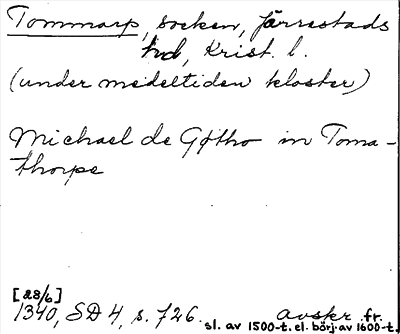 Tommarp, socken, Järrestads
hd, Krist. l.
(under medeltiden kloster)
Michael de Gøtho in Toma-
thorpe
[28/6]
1340, SD 4, s. 726. avskr. fr.
sl. av 1500-t. el. börj. av 1600-t.